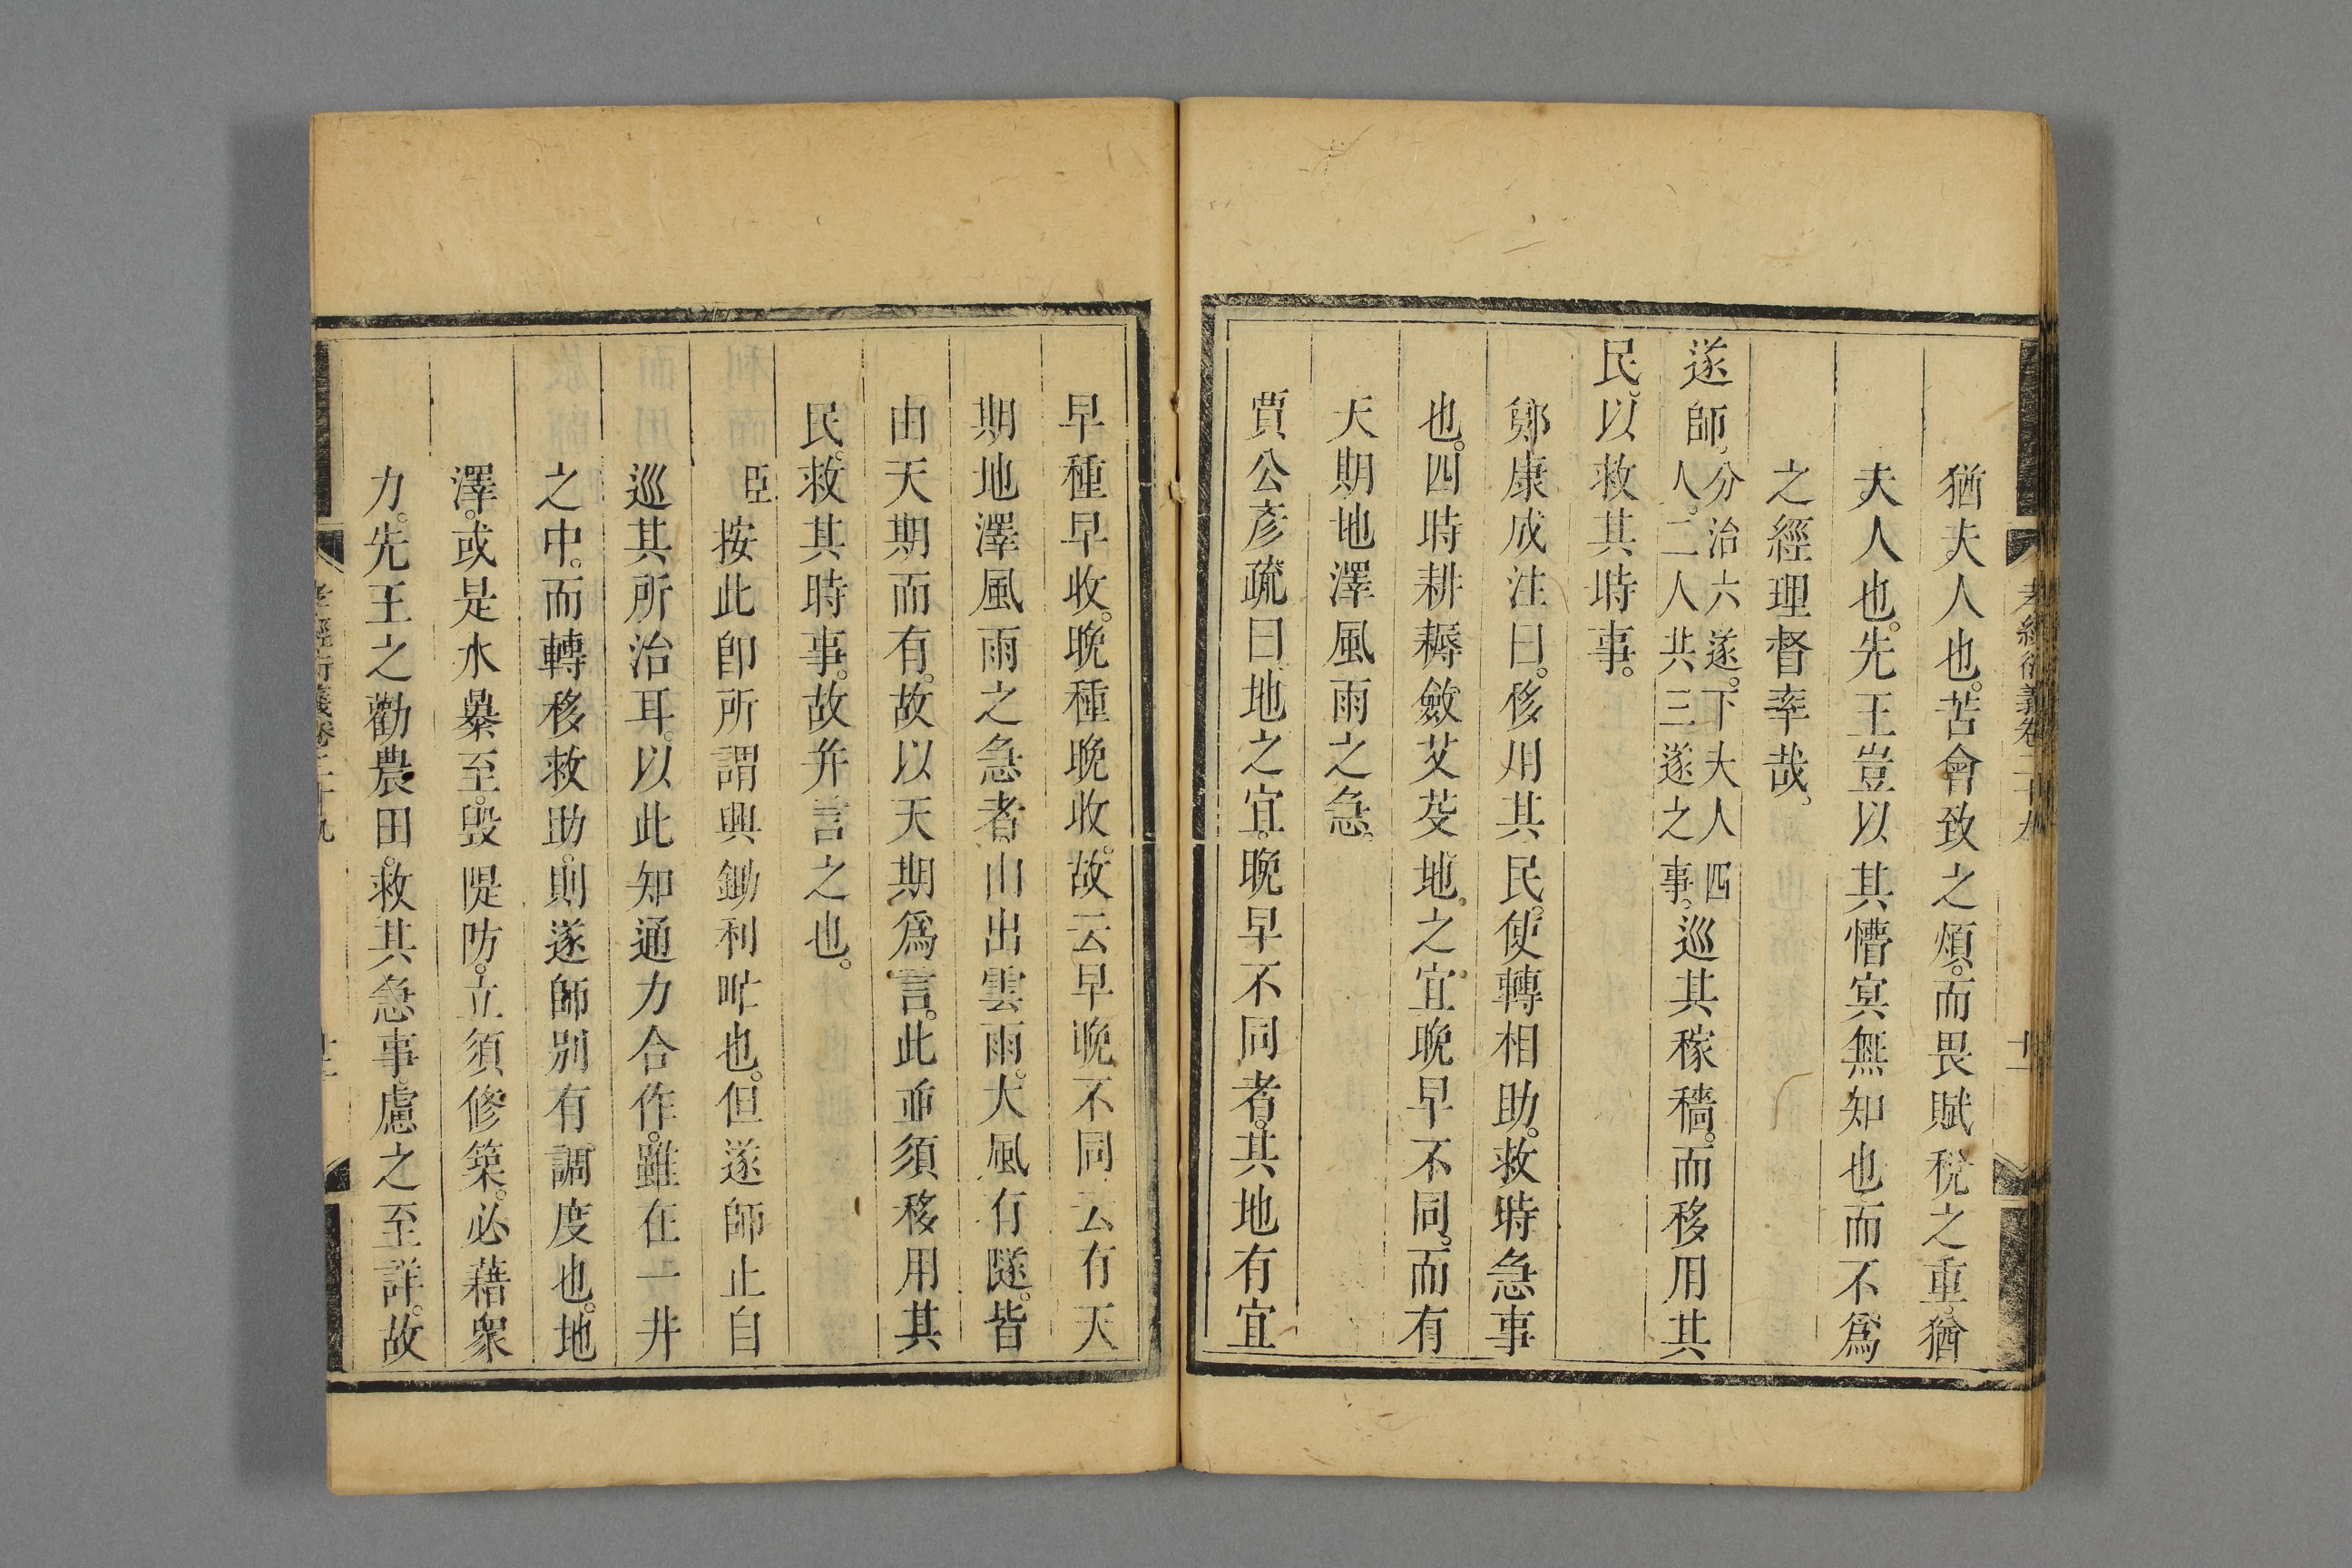 孝經衍義卷二十九
猶夫人也。苦會致之煩。而畏賦稅之重。猶
夫人也。先王豈以其懵寞無知也而不爲
之經理督率哉。
遂師。分治六遂。下大夫四人。二人共三遂之事。巡其稼穡。而移用其
民。以救其時事。
鄭康成注曰。移用其民。使轉相助。救時急事
也。四時耕耨斂艾芟地。之宜。晚早不同。而有
天期地澤風雨之急。
賈公彥疏曰。地之宜。晚早不同者。其地有宜
早種早收。晚種晚收。故云早晚不同云有天
期地澤風雨之急者。山出雲雨。大風有隧。皆
由天期而有。故以天期爲言。此並須移用其
民。救其時事。故并言之也。
臣按此卽所謂興鋤利甿也。但遂師止自
巡其所治耳。以此知通力合作。雖在一井
之中。而轉移救助。則遂師別有調度也。地
澤。或是水暴至。毀隄防。立須修築。必藉衆
力。先王之勸農田。救其急事。慮之至詳。故
孝經衍義卷二十九